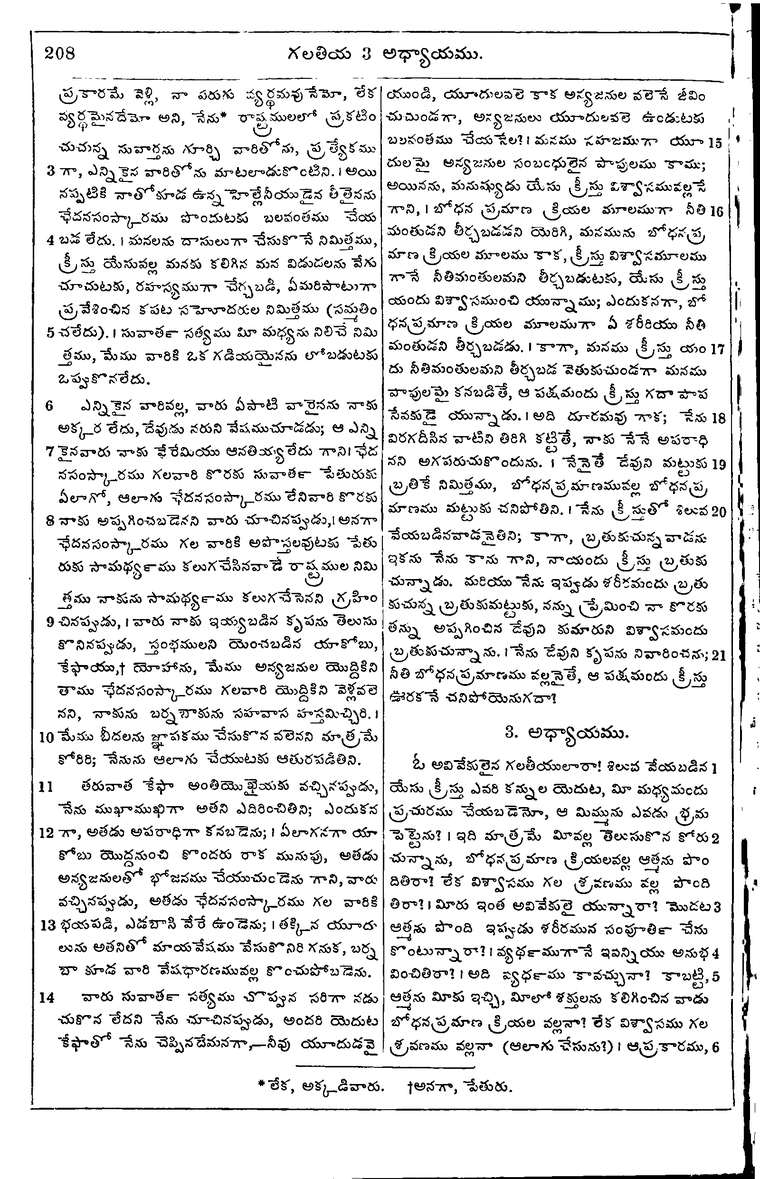 208
గలతియ 3 అధ్యాయము.
ప్రకారమే వెళ్లి, నా పరుగు వ్యర్థమవునేమో, లేక
వ్యర్థమైనదేమో అని, నేను* రాష్ట్రములలో ప్రకటిం
చుచున్న సువార్తను గూర్చి వారితోను, ప్రత్యేకము
3 గా, ఎన్నికైన వారితోను మాటలాడుకొంటిని. । అయి
నప్పటికి నాతోకూడ ఉన్న హెల్లేనీయుడైన తీతైనను
ఛేదనసంస్కారము పొందుటకు బలవంతము చేయ
4 బడ లేదు. । మనలను దాసులుగా చేసుకొనే నిమిత్తము,
క్రీస్తు యేసువల్ల మనకు కలిగిన మన విడుదలను వేగు
చూచుటకు, రహస్యముగా చేర్చబడి, ఏమరిపాటుగా
ప్రవేశించిన కపట సహోదరుల నిమిత్తము (సమ్మతిం
5 చలేదు). । సువార్త సత్యము మీ మధ్యను నిలిచే నిమి
త్తము, మేము వారికి ఒక గడియయైనను లోబడుటకు
ఒప్పుకొనలేదు.
6 ఎన్నికైన వారివల్ల, వారు ఏపాటి వారైనను నాకు
అక్కర లేదు, దేవుడు నరుని వేషముచూడడు; ఆ ఎన్ని
7 కైనవారు నాకు వేరేమియు ఆనతియ్యలేదు గాని। ఛేద
నసంస్కారము గలవారి కొరకు సువార్త పేతురుకు
ఏలాగో, ఆలాగు ఛేదనసంస్కారము లేనివారి కొరకు
8 నాకు అప్పగించబడెనని వారు చూచినప్పుడు,। అనగా
ఛేదనసంస్కారము గల వారికి అపొస్తలవుటకు పేతు
రుకు సామర్థ్యము కలుగచేసినవాడే రాష్ట్రముల నిమి
త్తము నాకును సామర్థ్యము కలుగచేసెనని గ్రహిం
9 చినప్పుడు, । వారు నాకు ఇయ్యబడిన కృపను తెలుసు
కొనినప్పుడు, స్తంభములని యెంచబడిన యాకోబు,
కేఫాయు,† యోహాను, మేము అన్యజనుల యొద్దికిని
తాము ఛేదనసంస్కారము గలవారి యొద్దికిని వెళ్లవలె
నని, నాకును బర్నబాకును సహవాస హస్తమిచ్చిరి. ।
10 మేము బీదలను జ్ఞాపకము చేసుకొన వలెనని మాత్రమే
కోరిరి; నేనును ఆలాగు చేయుటకు ఆతురపడితిని.
11 తరువాత కేఫా అంతియొఖైయకు వచ్చినప్పుడు,
నేను ముఖాముఖిగా అతని ఎదిరించితిని; ఎందుకన
12 గా, అతడు అపరాధిగా కనబడెను; । ఏలాగనగా యా
కోబు యొద్దనుంచి కొందరు రాక మునుపు, అతడు
అన్యజనులతో భోజనము చేయుచుండెను గాని, వారు
వచ్చినప్పుడు, అతడు ఛేదనసంస్కారము గల వారికి
13 భయపడి, ఎడబాసి వేరే ఉండెను; । తక్కిన యూదు
లును అతనితో మాయవేషము వేసుకొనిరి గనుక, బర్న
బా కూడ వారి వేషధారణమువల్ల కొంచుపోబడెను.
14 వారు సువార్త సత్యము చొప్పున సరిగా నడు
చుకొన లేదని నేను చూచినప్పుడు, అందరి యెదుట
కేఫాతో నేను చెప్పినదేమనగా,—నీవు యూదుడవై
యుండి, యూదులవలె కాక అన్యజనుల వలెనే జీవిం
చుచుండగా, అన్యజనులు యూదులవలె ఉండుటకు
బలవంతము చేయనేల?। మనము సహజముగా యూ 15
దులమై అన్యజనుల సంబంధులైన పాపులము కాము;
అయినను, మనుష్యుడు యేసు క్రీస్తు విశ్వాసమువల్లనే
గాని, । బోధన ప్రమాణ క్రియల మూలముగా నీతి 16
మంతుడని తీర్చబడడని యెరిగి, మనమును బోధనప్ర
మాణ క్రియల మూలము కాక, క్రీస్తు విశ్వాసమూలము
గానే నీతిమంతులమని తీర్చబడుటకు, యేసు క్రీస్తు
యందు విశ్వాసముంచి యున్నాము; ఎందుకనగా, బో
ధనప్రమాణ క్రియల మూలముగా ఏ శరీరియు నీతి
మంతుడని తీర్చబడడు. । కాగా, మనము క్రీస్తు యం 17
దు నీతిమంతులమని తీర్చబడ వెతుకుచుండగా మనము
పాపులమై కనబడితే, ఆ పక్షమందు క్రీస్తు గదా పాప
సేవకుడై యున్నాడు. । అది దూరమవు గాక; నేను 18
విరగదీసిన వాటిని తిరిగి కట్టితే, నాకు నేనే అపరాధి
నని అగపరుచుకొందును. । నేనైతే దేవుని మట్టుకు 19
బ్రతికే నిమిత్తము, బోధనప్రమాణమువల్ల బోధనప్ర
మాణము మట్టుకు చనిపోతిని. । నేను క్రీస్తుతో శిలువ 20
వేయబడినవాడనైతిని; కాగా, బ్రతుకుచున్నవాడను
ఇకను నేను కాను గాని, నాయందు క్రీస్తు బ్రతుకు
చున్నాడు. మరియు నేను ఇప్పుడు శరీరమందు బ్రతు
కుచున్న బ్రతుకుమట్టుకు, నన్ను ప్రేమించి నా కొరకు
తన్ను అప్పగించిన దేవుని కుమారుని విశ్వాసమందు
బ్రతుకుచున్నాను. । నేను దేవుని కృపను నివారించను; 21
నీతి బోధనప్రమాణము వల్లనైతే, ఆ పక్షమందు క్రీస్తు
ఊరకనే చనిపోయెనుగదా?
3. అధ్యాయము.
ఓ అవివేకులైన గలతీయులారా! శిలువ వేయబడిన 1
యేసు క్రీస్తు ఎవరి కన్నుల యెదుట, మీ మధ్యమందు
ప్రచురము చేయబడెనో, ఆ మిమ్మును ఎవడు భ్రమ
పెట్టెను? । ఇది మాత్రమే మీవల్ల తెలుసుకొన కోరు 2
చున్నాను, బోధనప్రమాణ క్రియలవల్ల ఆత్మను పొం
దితిరా? లేక విశ్వాసము గల శ్రవణము వల్ల పొంది
తిరా?। మీరు ఇంత అవివేకులై యున్నారా? మొదట 3
ఆత్మను పొంది ఇప్పుడు శరీరమున సంపూర్తి చేసు
కొంటున్నారా?। వ్యర్థముగానే ఇవన్నియు అనుభ 4
వించితిరా?। అది వ్యర్థము కావచ్చునా? కాబట్టి, 5
ఆత్మను మీకు ఇచ్చి, మీలో శక్తులను కలిగించిన వాడు
బోధనప్రమాణ క్రియల వల్లనా? లేక విశ్వాసము గల
శ్రవణము వల్లనా (ఆలాగు చేసును?)। ఆప్రకారము, 6
*లేక, అక్కడివారు. †అనగా, పేతురు.